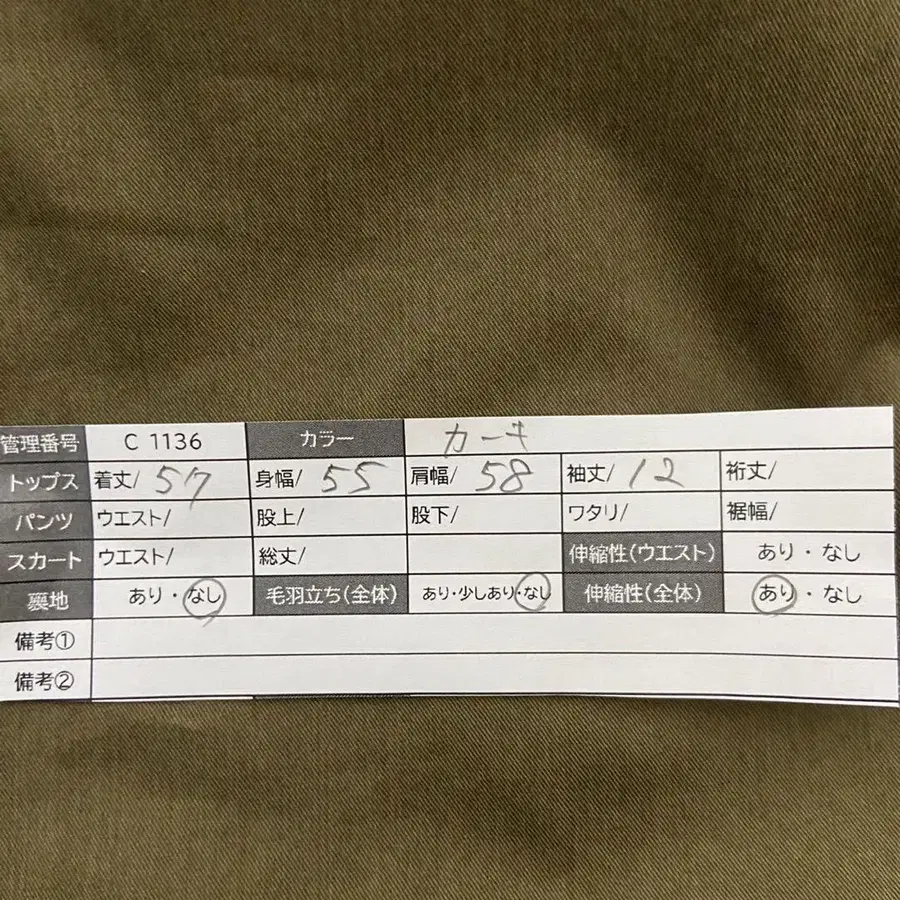 管理番号 C 1136 カラー カーキ
トップス 着丈/ 57 身幅/ 55 肩幅/ 58 袖丈/ 12 裄丈/
パンツ ウエスト/ 股上/ 股下/ ワタリ/ 裾幅/
スカート ウエスト/ 総丈/ 伸縮性(ウエスト) あり・なし
裏地 あり・なし 毛羽立ち(全体) あり・少しあり・なし 伸縮性(全体) あり・なし
備考①
備考②